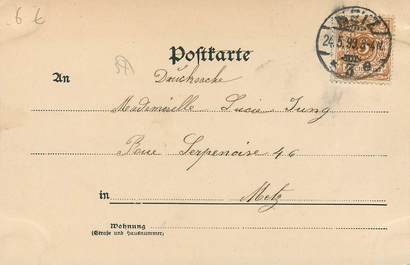 6 €
METZ
24.5.99.3-4N.
Postkarte
An
Drucksache
Mademoiselle Lucie Jung
Rue Serpenoise 46
in Metz
Wohnung
(Straße und Hausnummer)